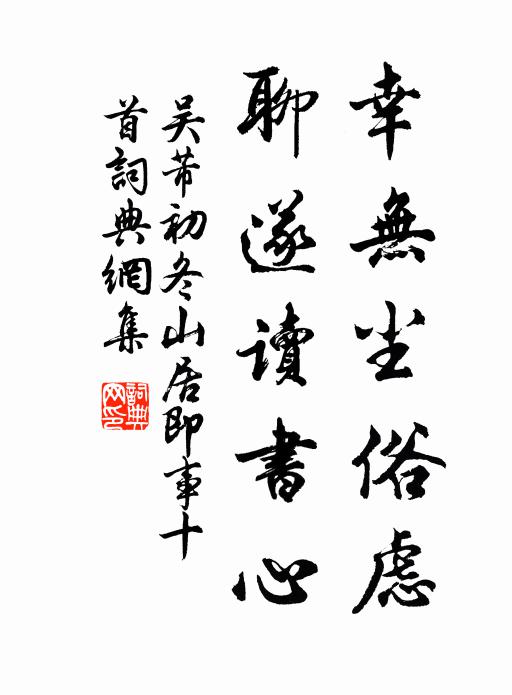 幸無尘俗慮
聊遂讀書心
吴芾初冬山居即事十
首詞典網集
詞典
网印